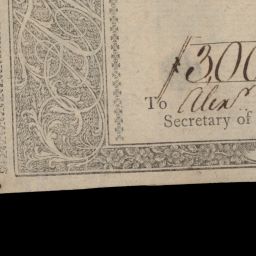 $300
To Alexr.
Secretary of